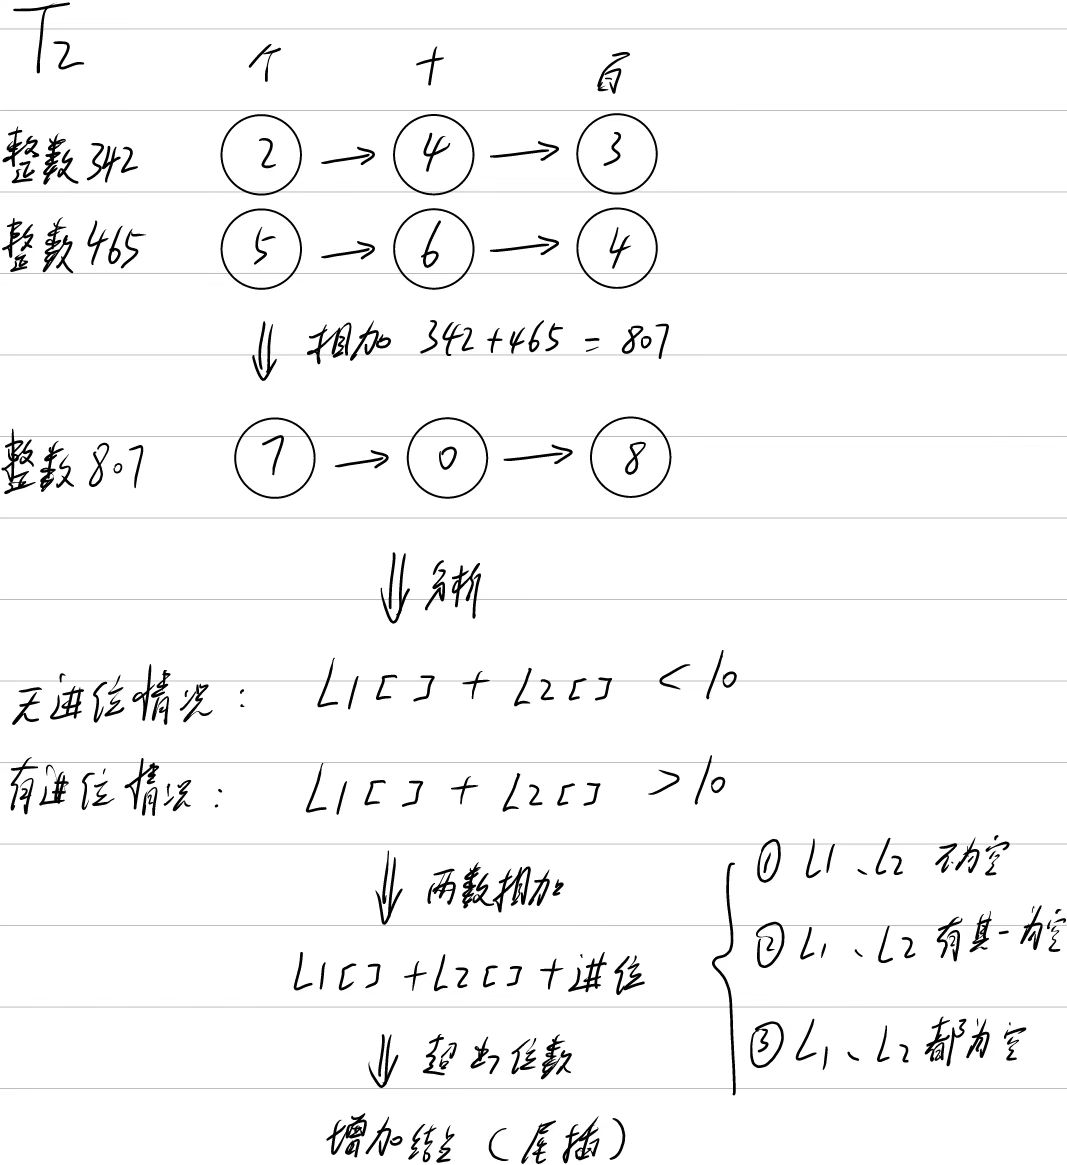 T2
个 十 百
整数342 2 → 4 → 3
整数465 5 → 6 → 4
⇓ 相加 342+465 = 807
整数807 7 → 0 → 8
⇓ 分析
无进位情况: L1[] + L2[] < 10
有进位情况: L1[] + L2[] > 10
⇓ 两数相加
L1[] + L2[] + 进位
① L1、L2 不为空
② L1、L2 有其一为空
③ L1、L2 都为空
⇓ 超出位数
增加结点 (尾插)